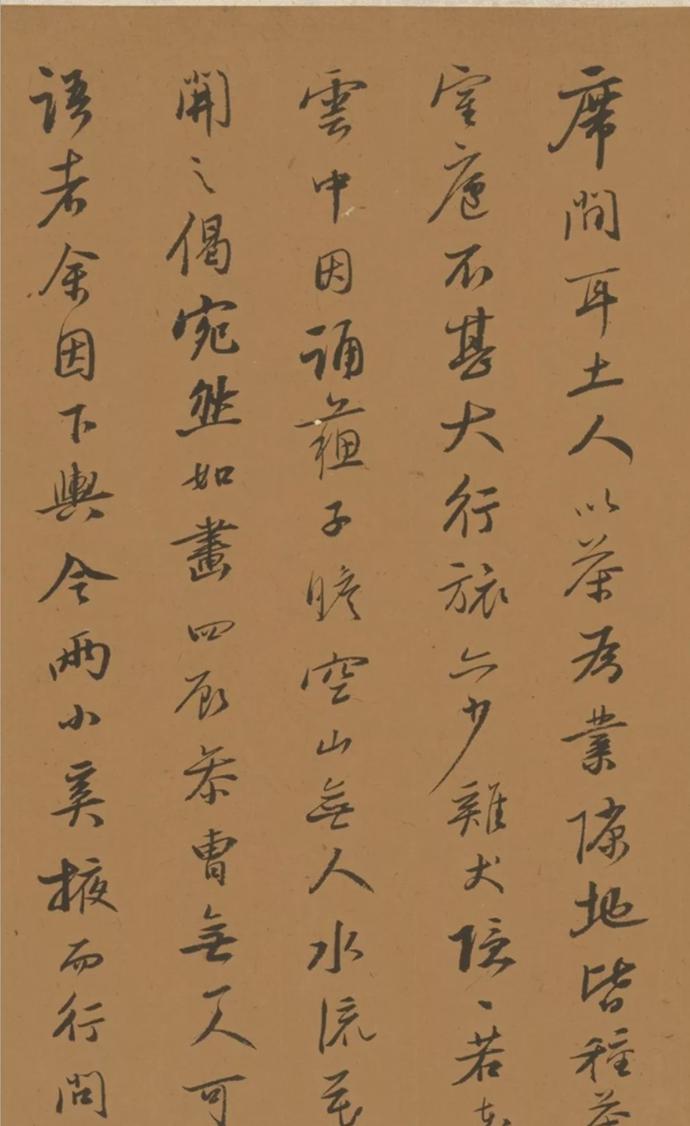 席間耳土人以茶為業隙地皆種茶
室廬不甚大行旅亦少雞犬隱〻若在
雲中因誦蘇子瞻空山無人水流花
開之偈宛然如畫四顧茶曹無一人可
語者余因下輿令兩小奚掖而行問